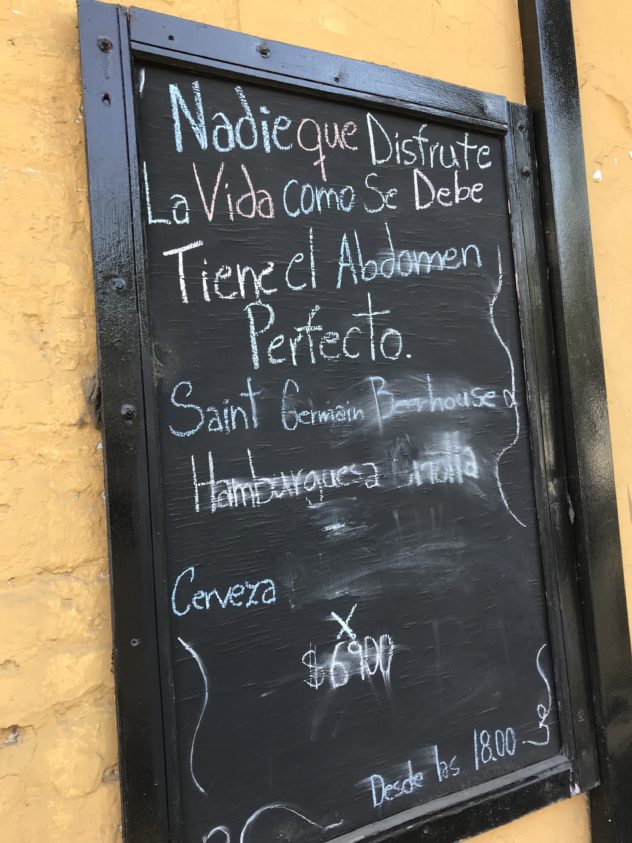 Nadie que Disfrute
La Vida como Se Debe
Tiene el Abdomen
Perfecto.
Saint Germain Beerhouse
Hamburguesa Criolla
Cerveza
X
$6900
Desde las 18.00